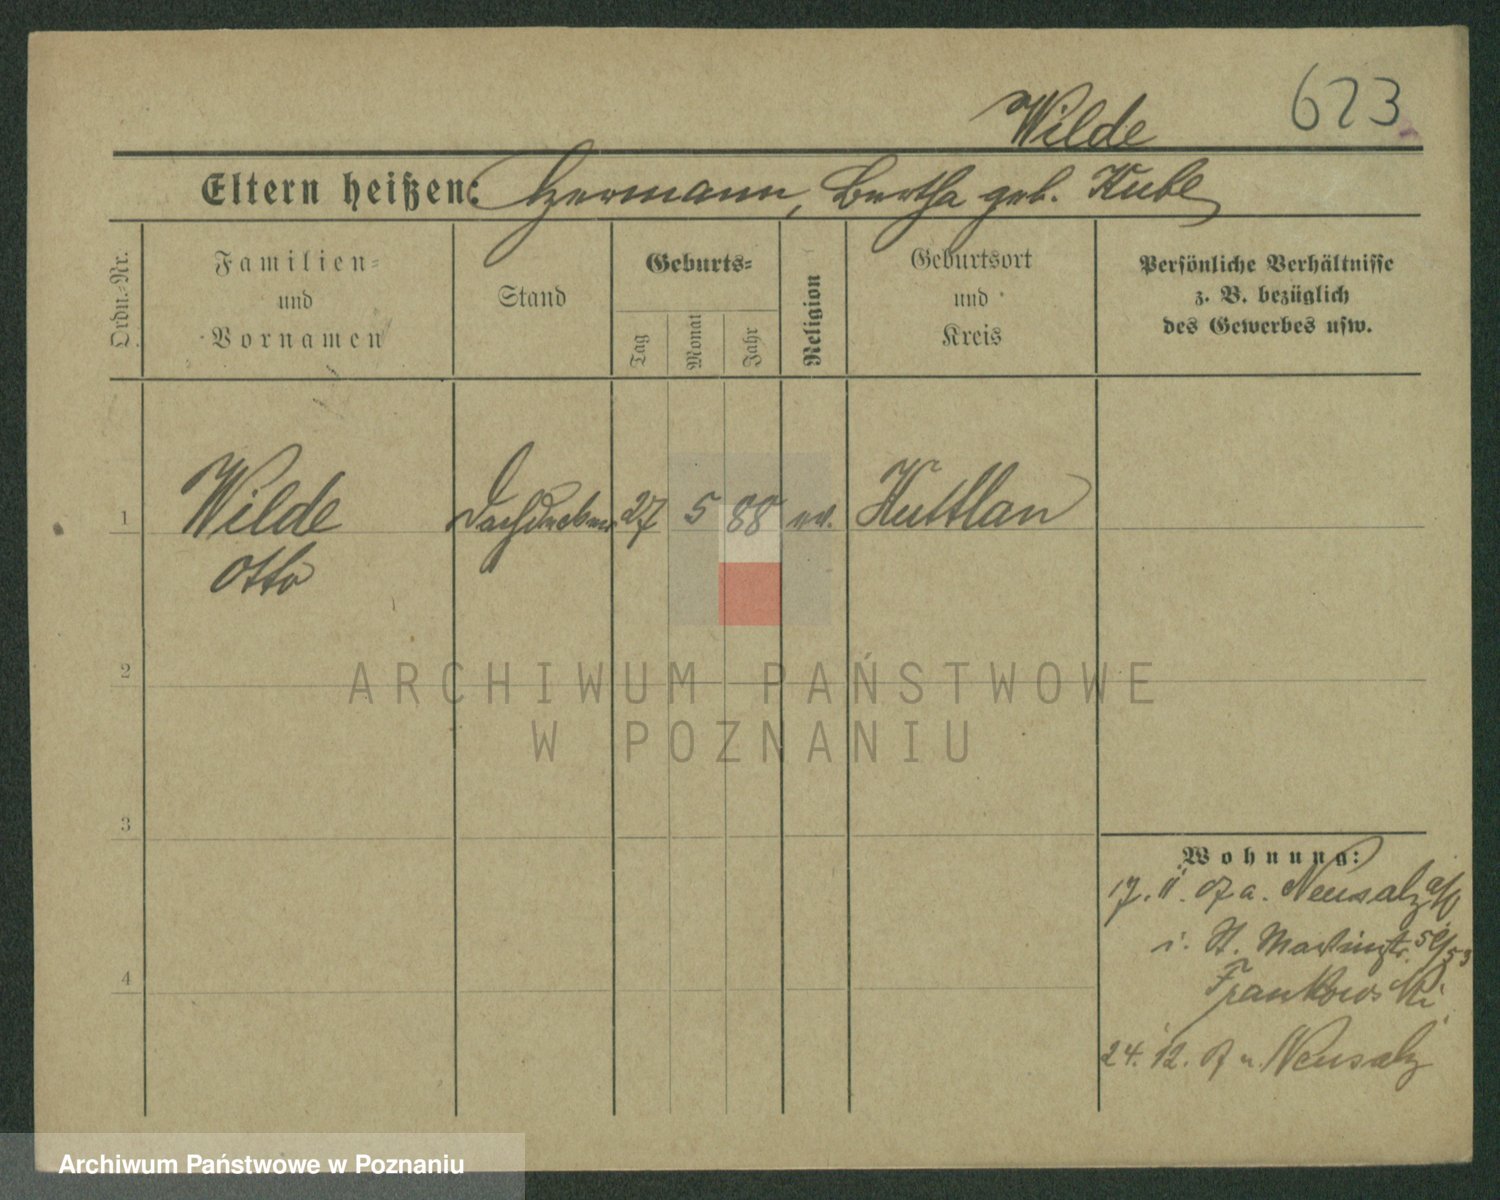 623
Wilde
Eltern heißen: Hermann, Bertha geb. Kube
Ordn.-Nr.
Familien-
und
Vornamen
Stand
Geburts-
Tag
Monat
Jahr
Religion
Geburtsort
und
Kreis
Persönliche Verhältnisse
z. B. bezüglich
des Gewerbes usw.
1
Wilde
Otto
Dachdecker
27
5
88
ev.
Kuttlau
2
3
4
Wohnung:
17. 11. 07 a. Neusalz a/O
i. St. Martinstr. 52/53
Frankowski
24. 12. 07 n. Neusalz
ARCHIWUM PAŃSTWOWE
W POZNANIU
Archiwum Państwowe w Poznaniu